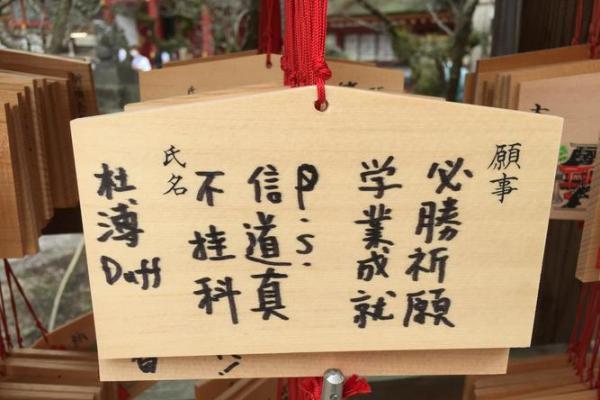 願事
必勝祈願
学業成就
P.S.
信道真
不挂科
氏名
杜溥
Duff